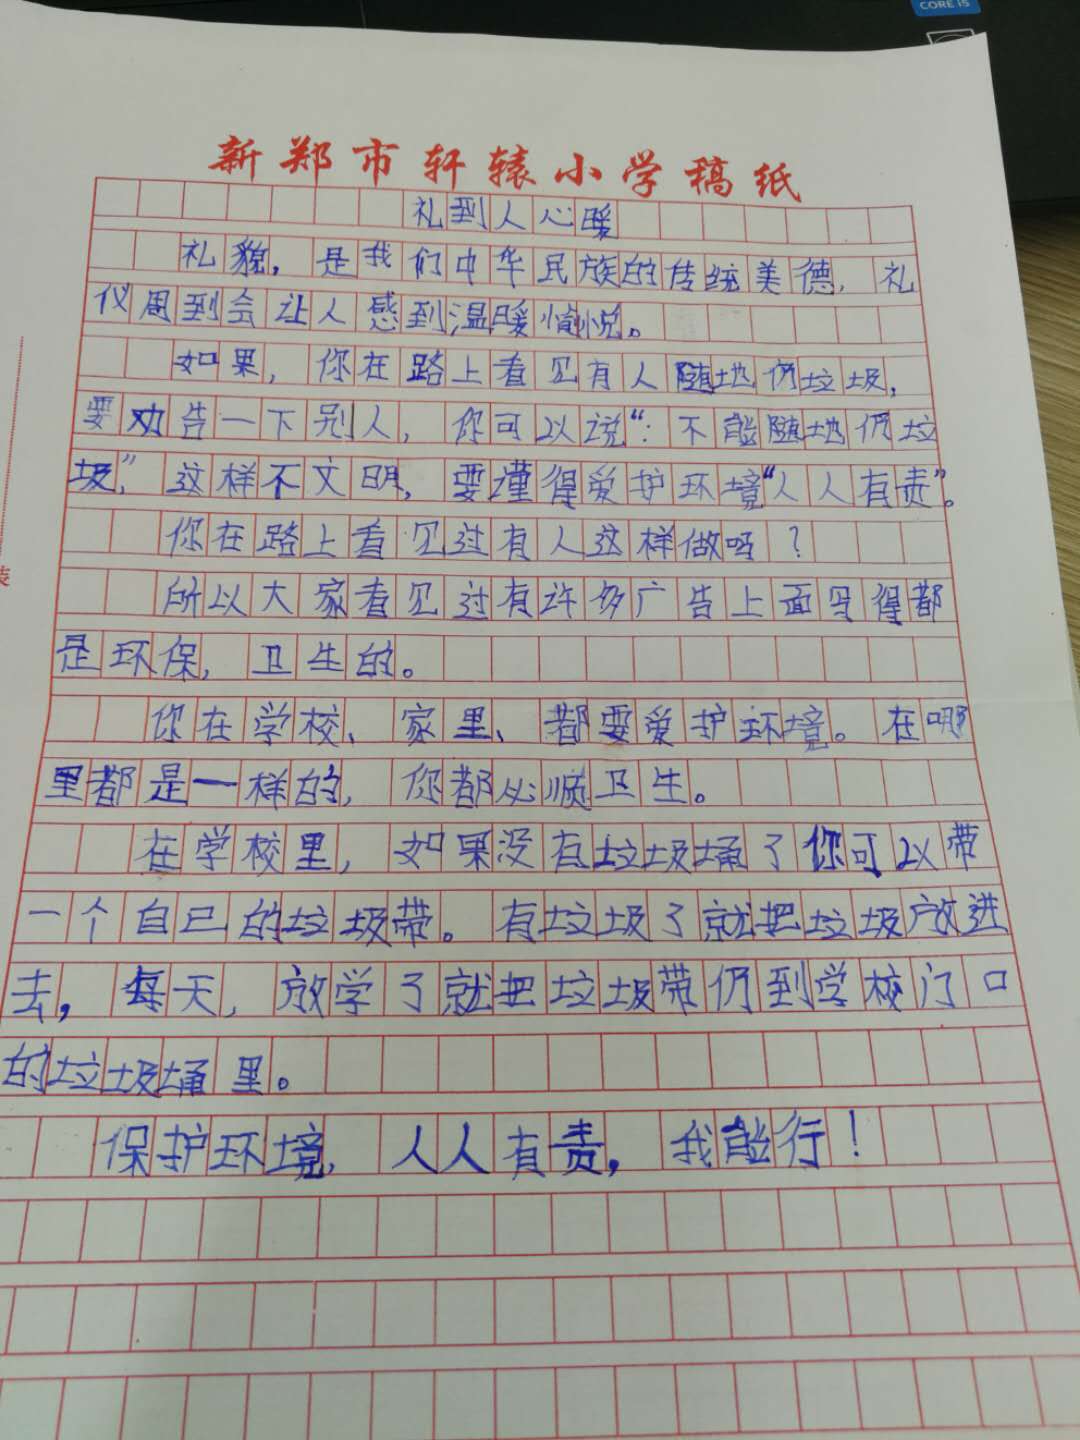 CORE i5
新郑市轩辕小学稿纸
礼到人心暖
礼貌，是我们中华民族的传统美德，礼
仪周到会让人感到温暖愉悦。
如果，你在路上看见有人随地仍垃圾，
要劝告一下别人，你可以说“：不能随地仍垃
圾，”这样不文明，要懂得爱护环境“人人有责”。
你在路上看见过有人这样做吗？
所以大家看见过有许多广告上面写得都
是环保，卫生的。
你在学校、家里、都要爱护环境。在哪
里都是一样的，你都必顺卫生。
在学校里，如果没有垃圾埇了你可以带
一个自已的垃圾带。有垃圾了就把垃圾放进
去，每天，放学了就把垃圾带仍到学校门口
的垃圾埇里。
保护环境，人人有责，我能行！